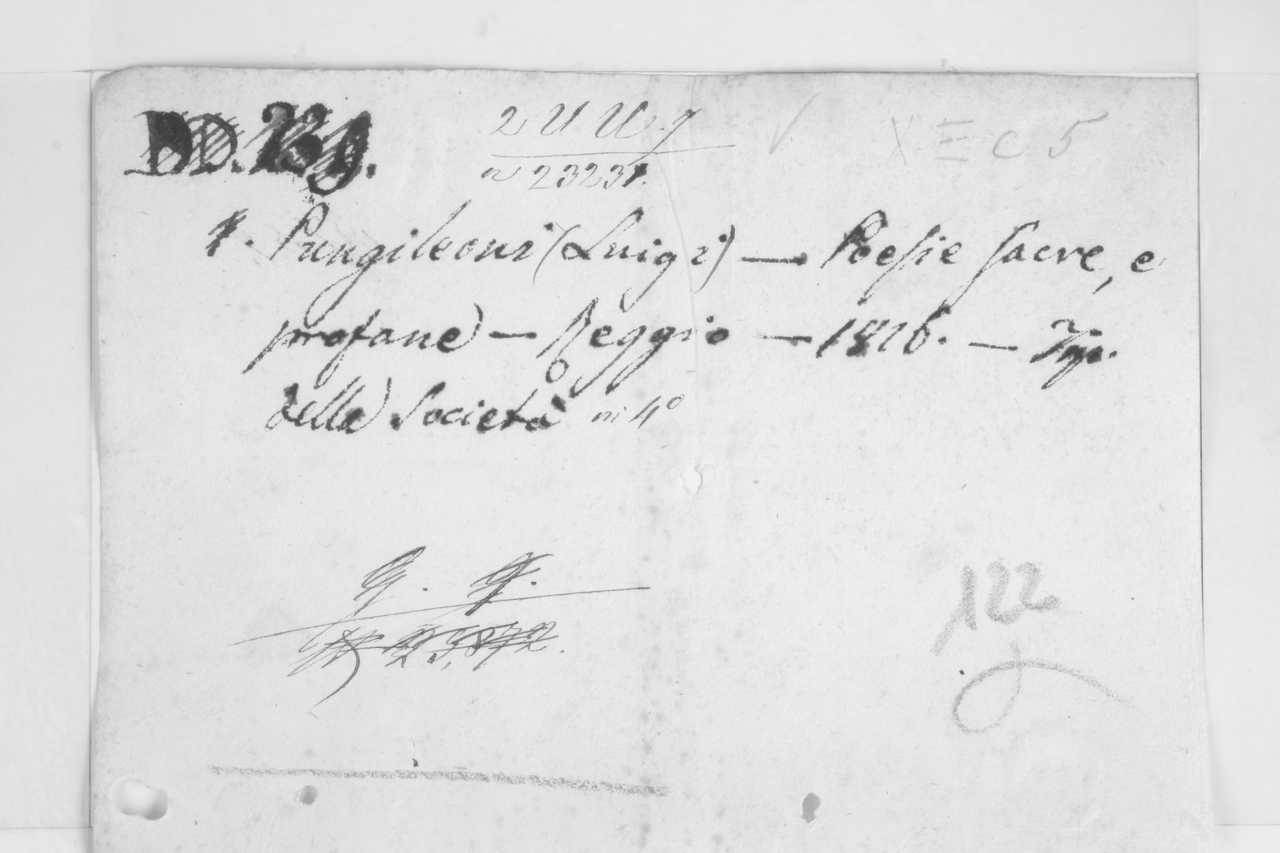 DD. 239.
2 U U. 7
n 23231.
V X E C 5
Pungileoni (Luigi) — Poesie sacre, e
profane — Reggio — 1816. — Typ.
della Società in 4º
122